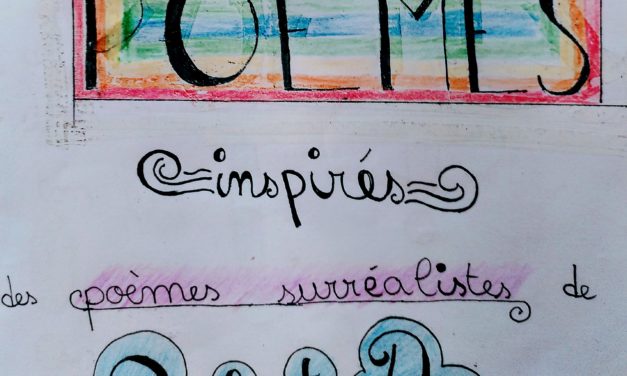 POEMES
inspirés
des poèmes surréalistes de